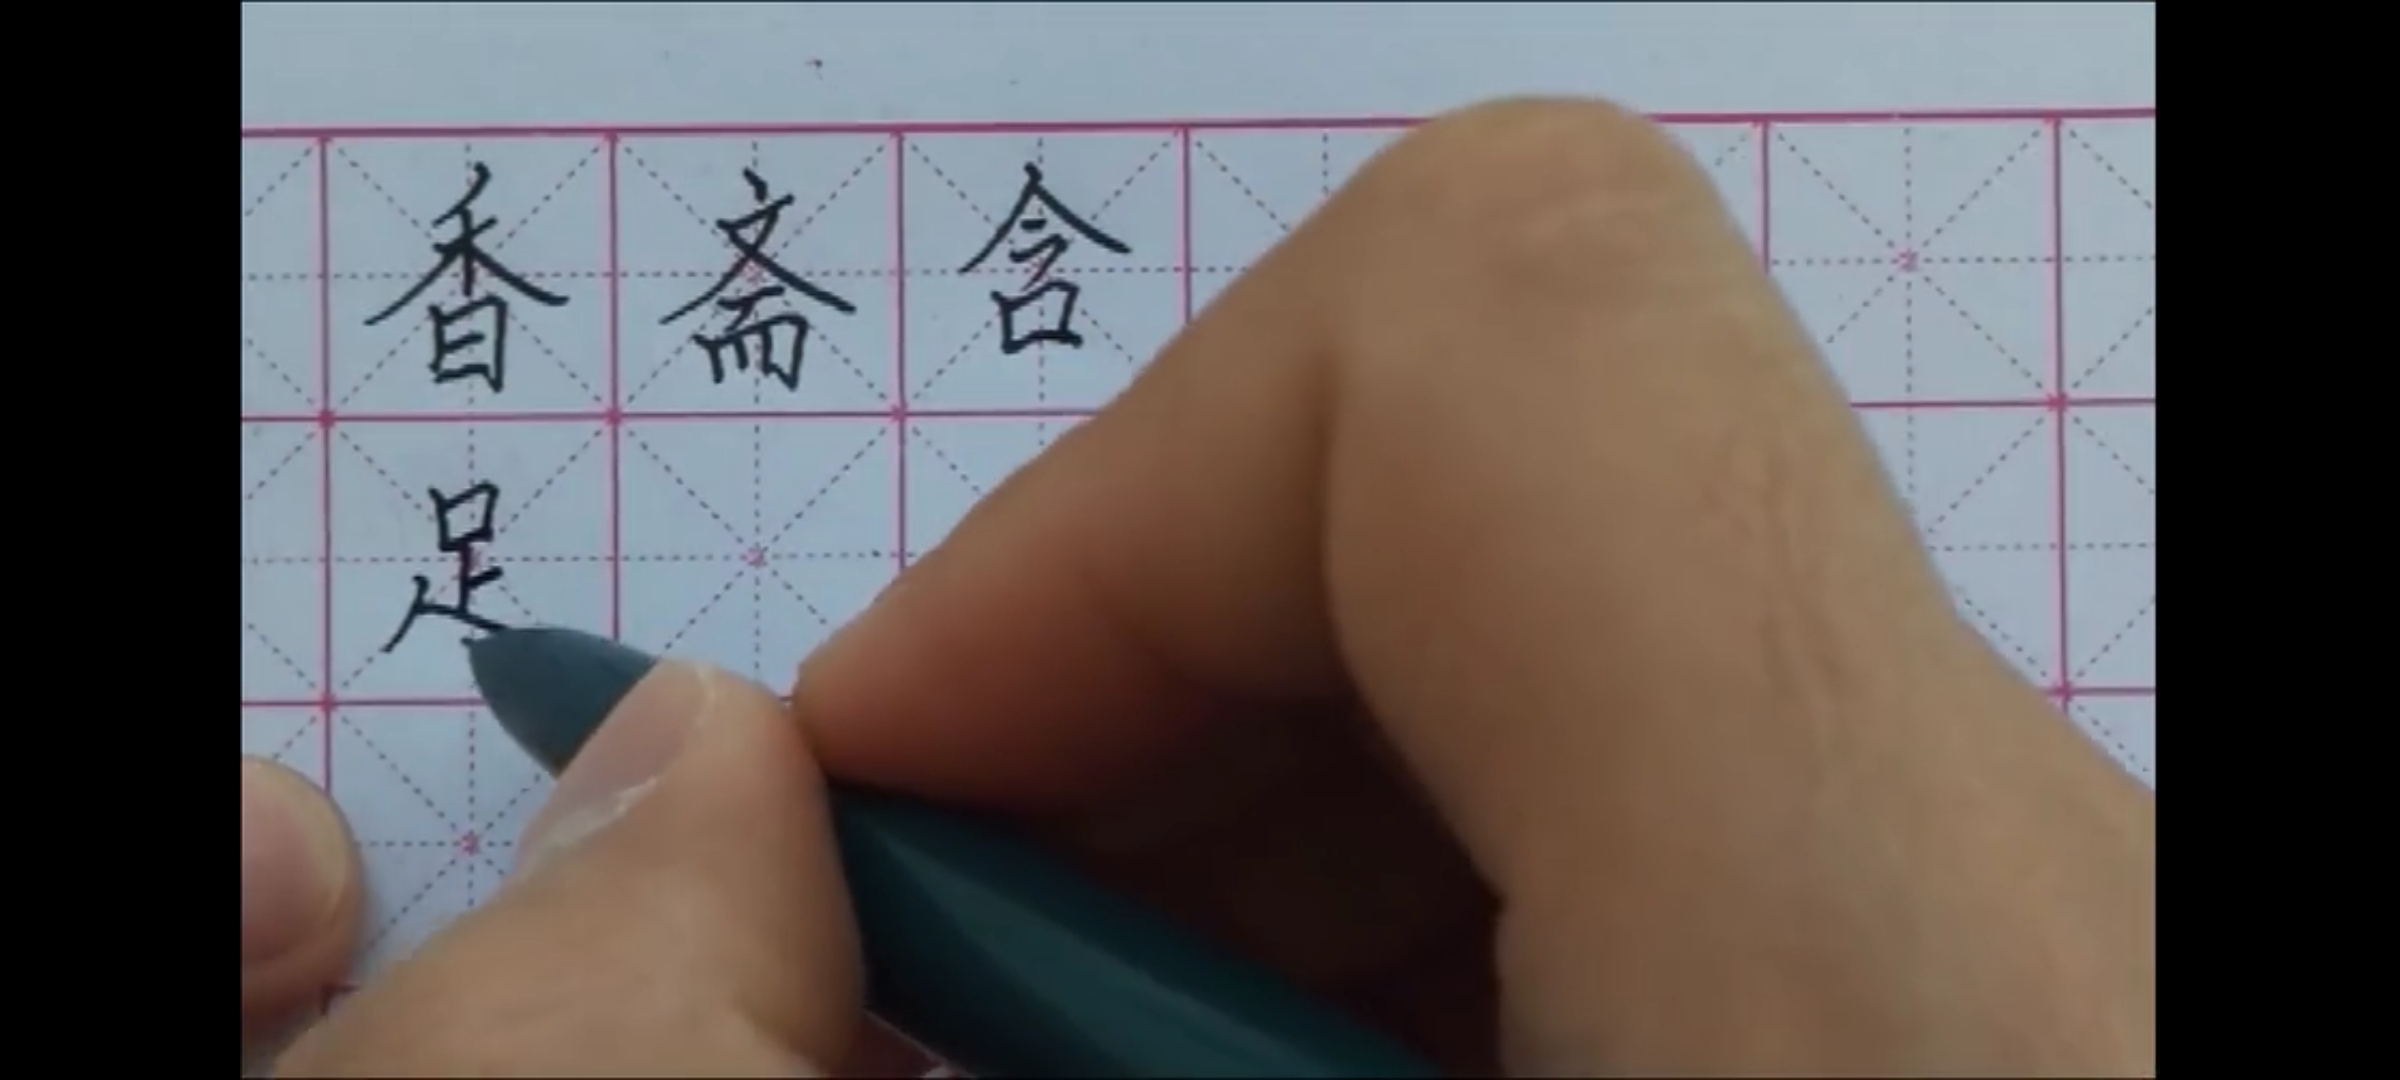 香斋含
足